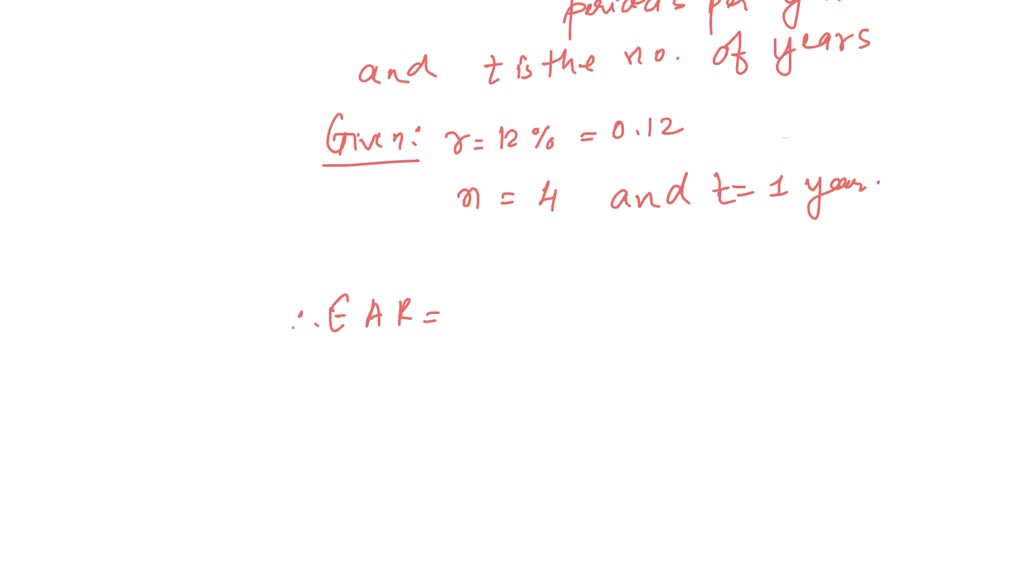 periods per
and t is the no. of years
Given: r = 12 % = 0.12
n = 4 and t = 1 year.
∴ E A R =